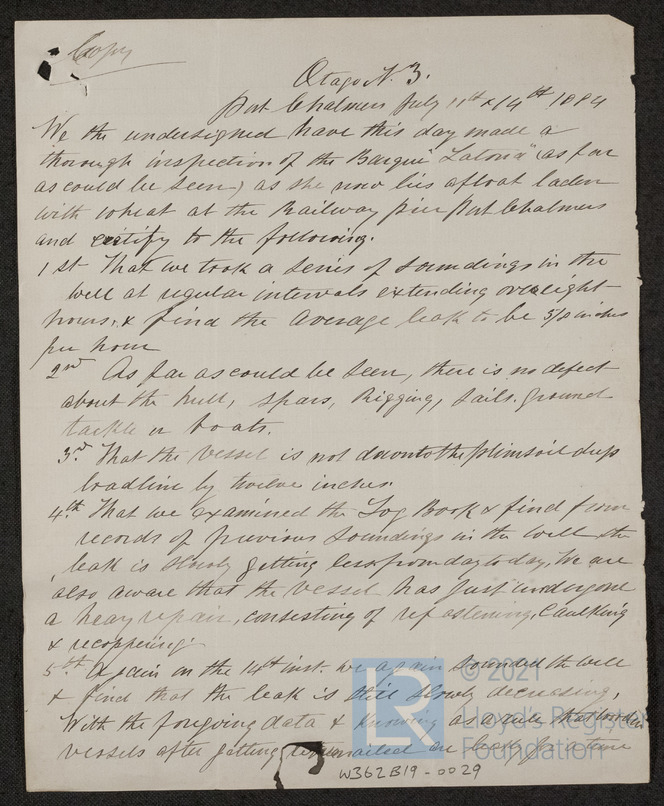 Copy
Otago N. 3.
Port Chalmers July 11th & 14th 1884
We the undersigned have this day made a
thorough inspection of the Barque "Latona" (as far
as could be seen) as she now lies afloat laden
with wheat at the Railway pier Port Chalmers
and certify to the following.
1st That we took a series of soundings in the
well at regular intervals extending over eight
hours, & find the average leak to be 5/8 inches
per hour
2nd As far as could be seen, there is no defect
about the hull, spars, Rigging, sails. ground
tackle or boats.
3rd That the vessel is not down to the plimsoil deep
loadline by twelve inches.
4th That we examined the Log Book & find from
records of previous soundings in the well the
leak is slowly getting less from day to day, We are
also aware that the vessel has just undergone
a heavy repair, consisting of refastening, Caulking
& recoppering.
5th Again on the 14th inst. we again sounded the well
& find that the leak is still slowly decreasing,
With the forgoing data & knowing as a rule, that wooden
vessels after getting are leaky for a time
W362B19-0029
© 2021
LR
Lloyd's Register
Foundation